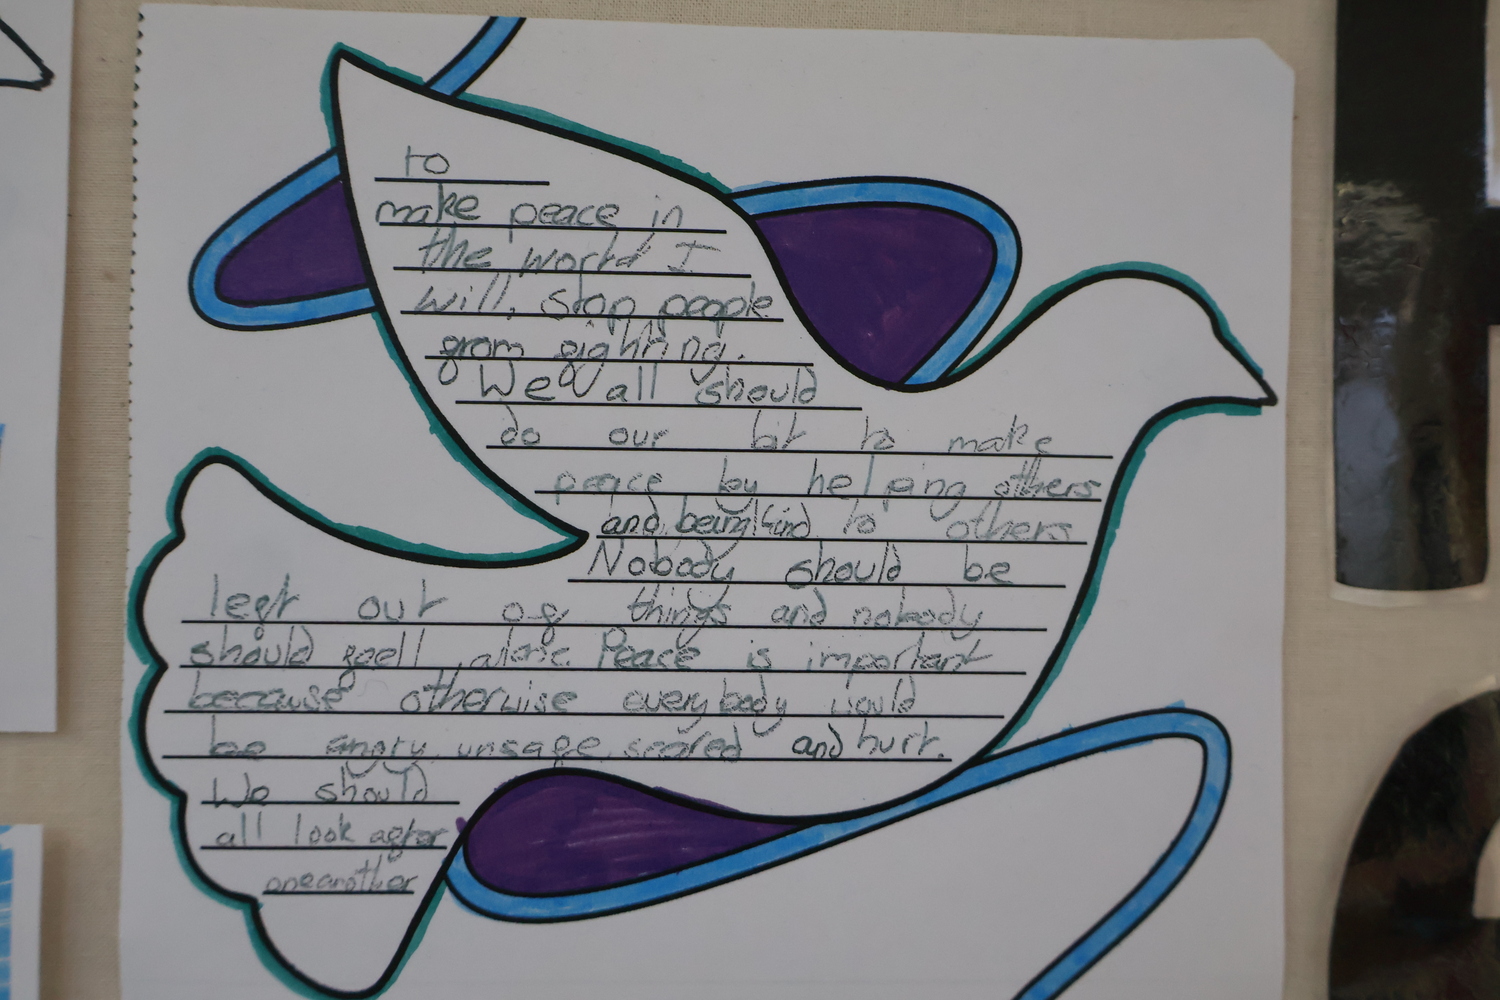 to
make peace in
the world I
will, stop people
from fighting.
We all should
do our bit to make
peace by helping others
and being kind to others
Nobody should be
left out of things and nobody
should feel alone. Peace is important
because otherwise everybody would
be angry, unsafe, scared and hurt.
We should
all look after
one another